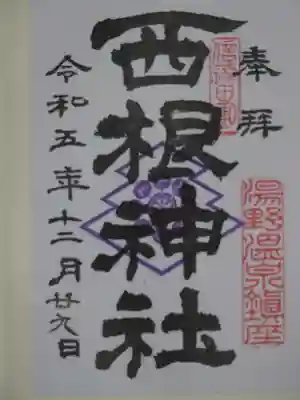 奉拝
西根神社
湯野温泉鎮座
令和五年十二月廿九日